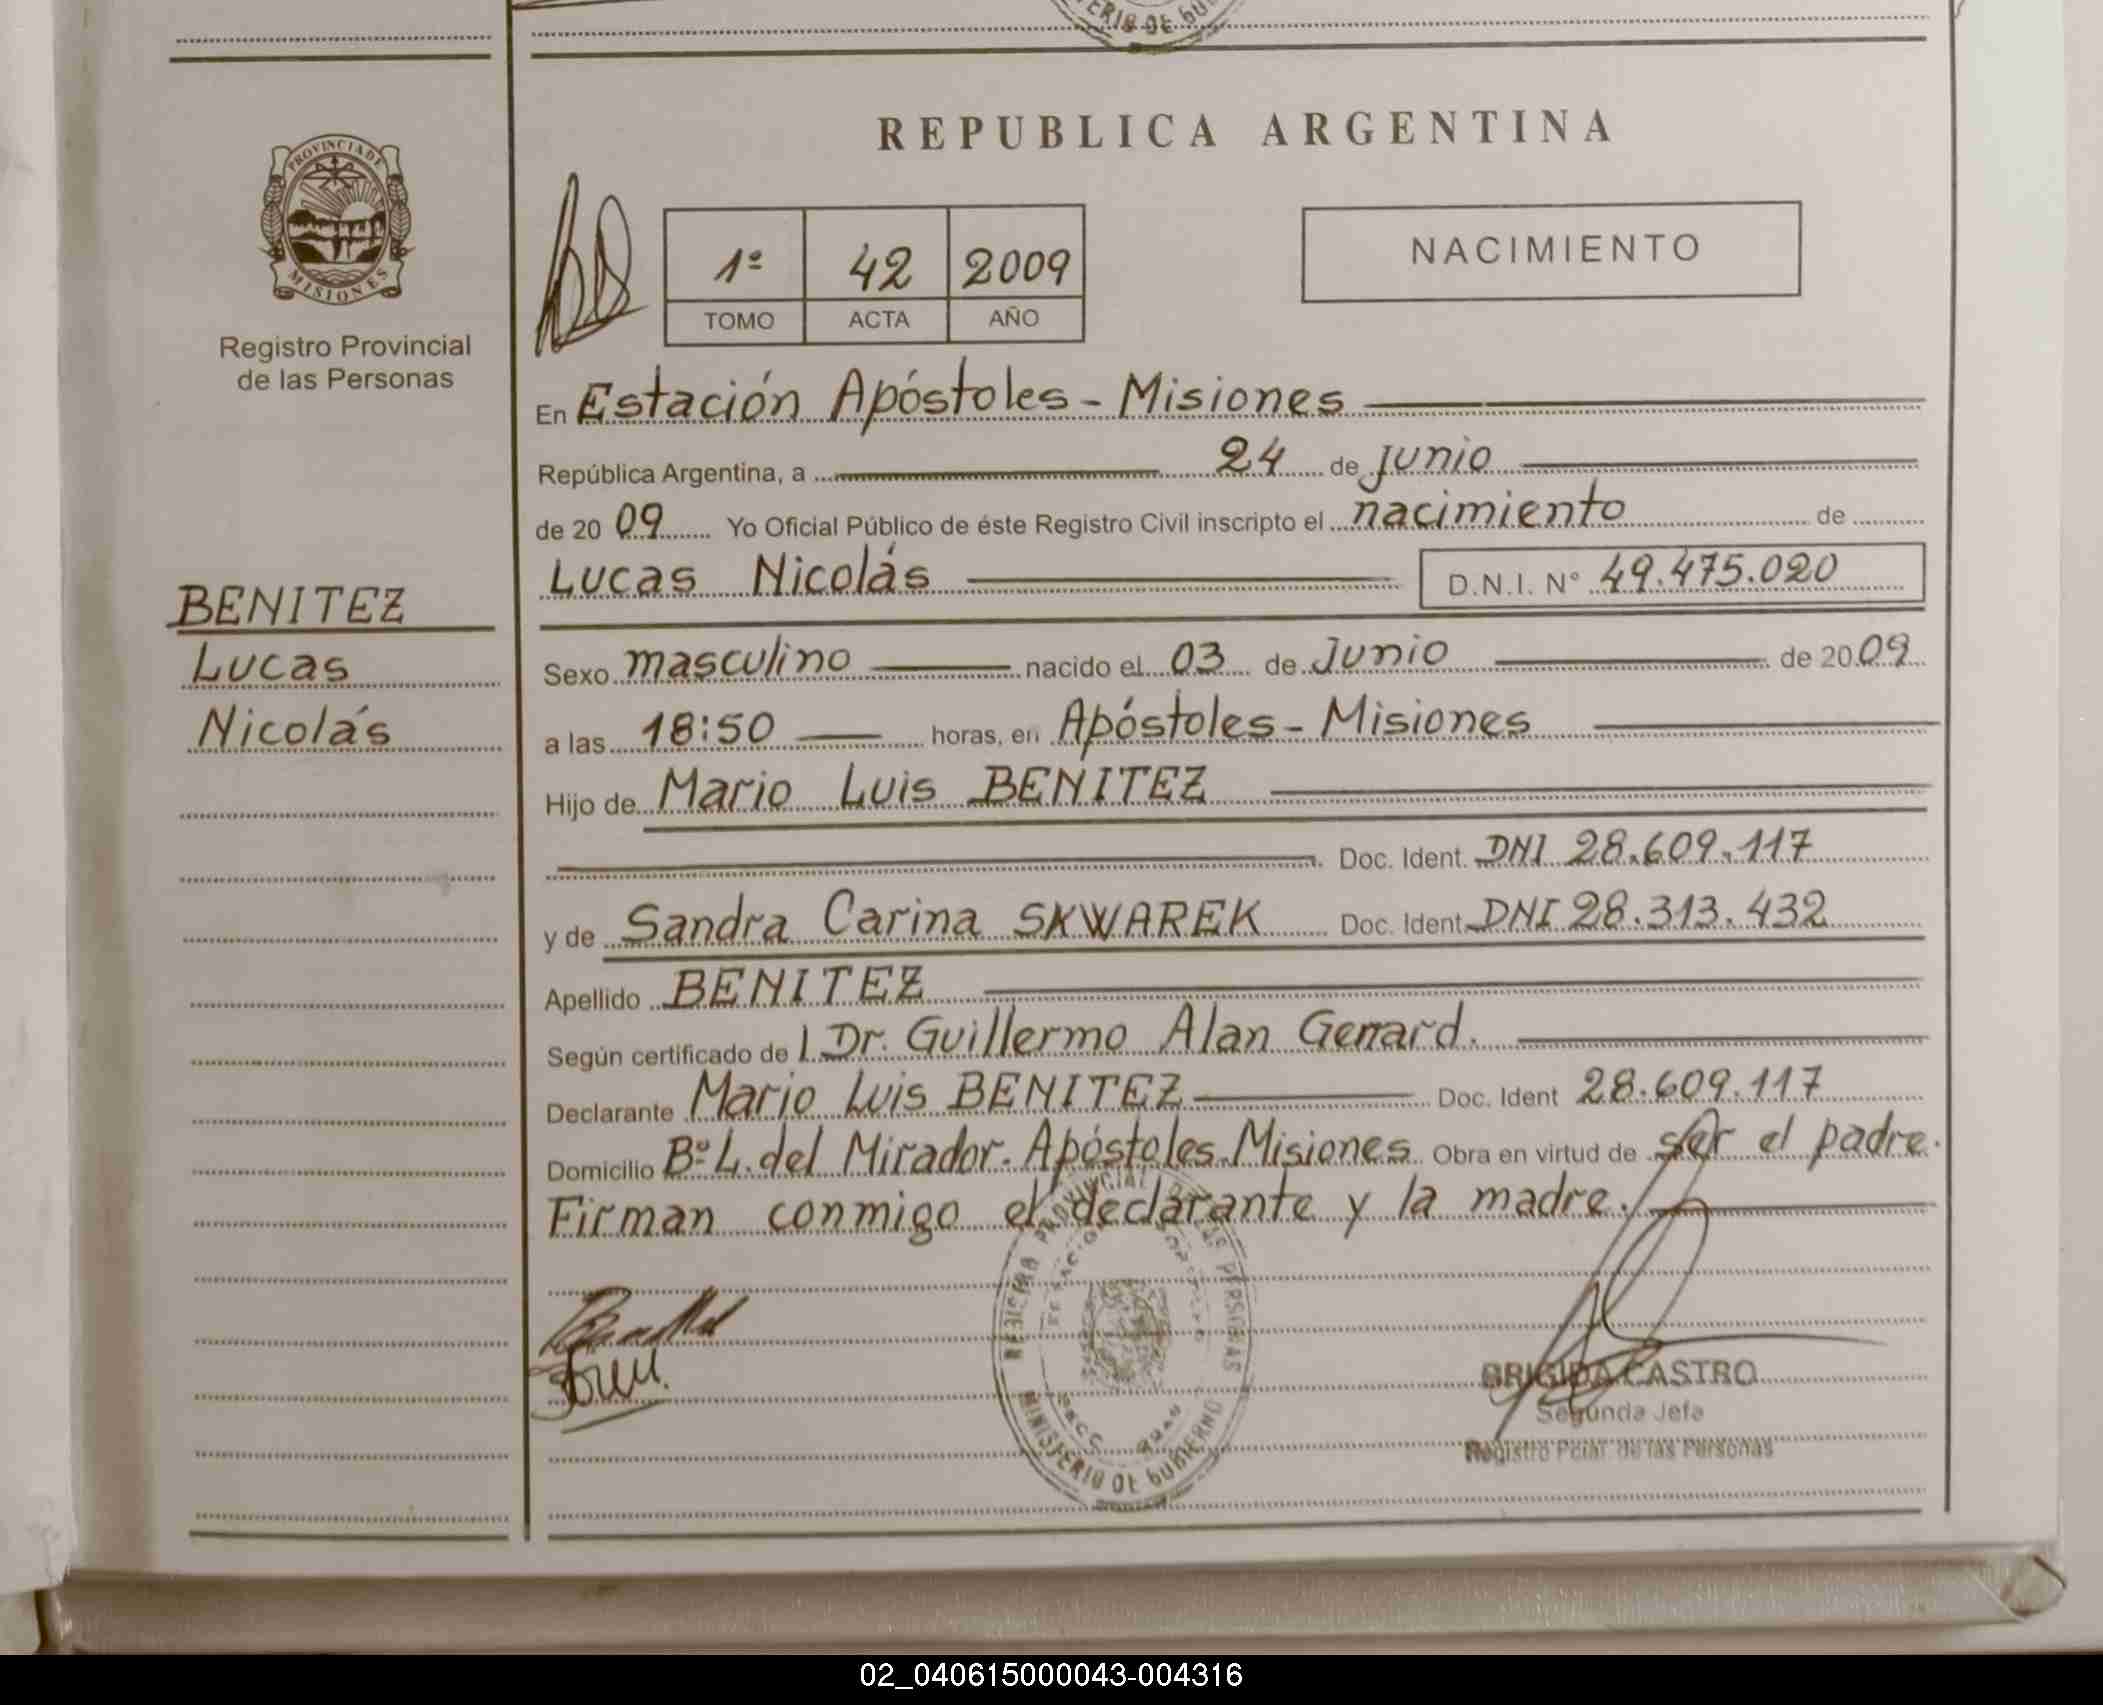 MINISTERIO DE GOBIERNO
REPUBLICA ARGENTINA
PROVINCIA DE
MISIONES
Registro Provincial
de las Personas
1º 42 2009
TOMO ACTA AÑO
NACIMIENTO
En Estación Apóstoles - Misiones
República Argentina, a 24 de junio
de 2009 Yo Oficial Público de éste Registro Civil inscripto el nacimiento de
Lucas Nicolás D.N.I. N° 49.475.020
BENITEZ
Lucas
Nicolás
Sexo masculino nacido el 03 de Junio de 2009
a las 18:50 horas, en Apóstoles - Misiones
Hijo de Mario Luis BENITEZ
Doc. Ident. DNI 28.609.117
y de Sandra Carina SKWAREK Doc. Ident. DNI 28.313.432
Apellido BENITEZ
Según certificado de l Dr. Guillermo Alan Gerrard.
Declarante Mario Luis BENITEZ Doc. Ident 28.609.117
Domicilio Bº L. del Mirador. Apóstoles. Misiones Obra en virtud de ser el padre.
Firman conmigo el declarante y la madre.
REGISTRO PROVINCIAL DE LAS PERSONAS
MINISTERIO DE GOBIERNO
BRIGIDA CASTRO
Segunda Jefa
Registro Pcial. de las Personas
02_040615000043-004316